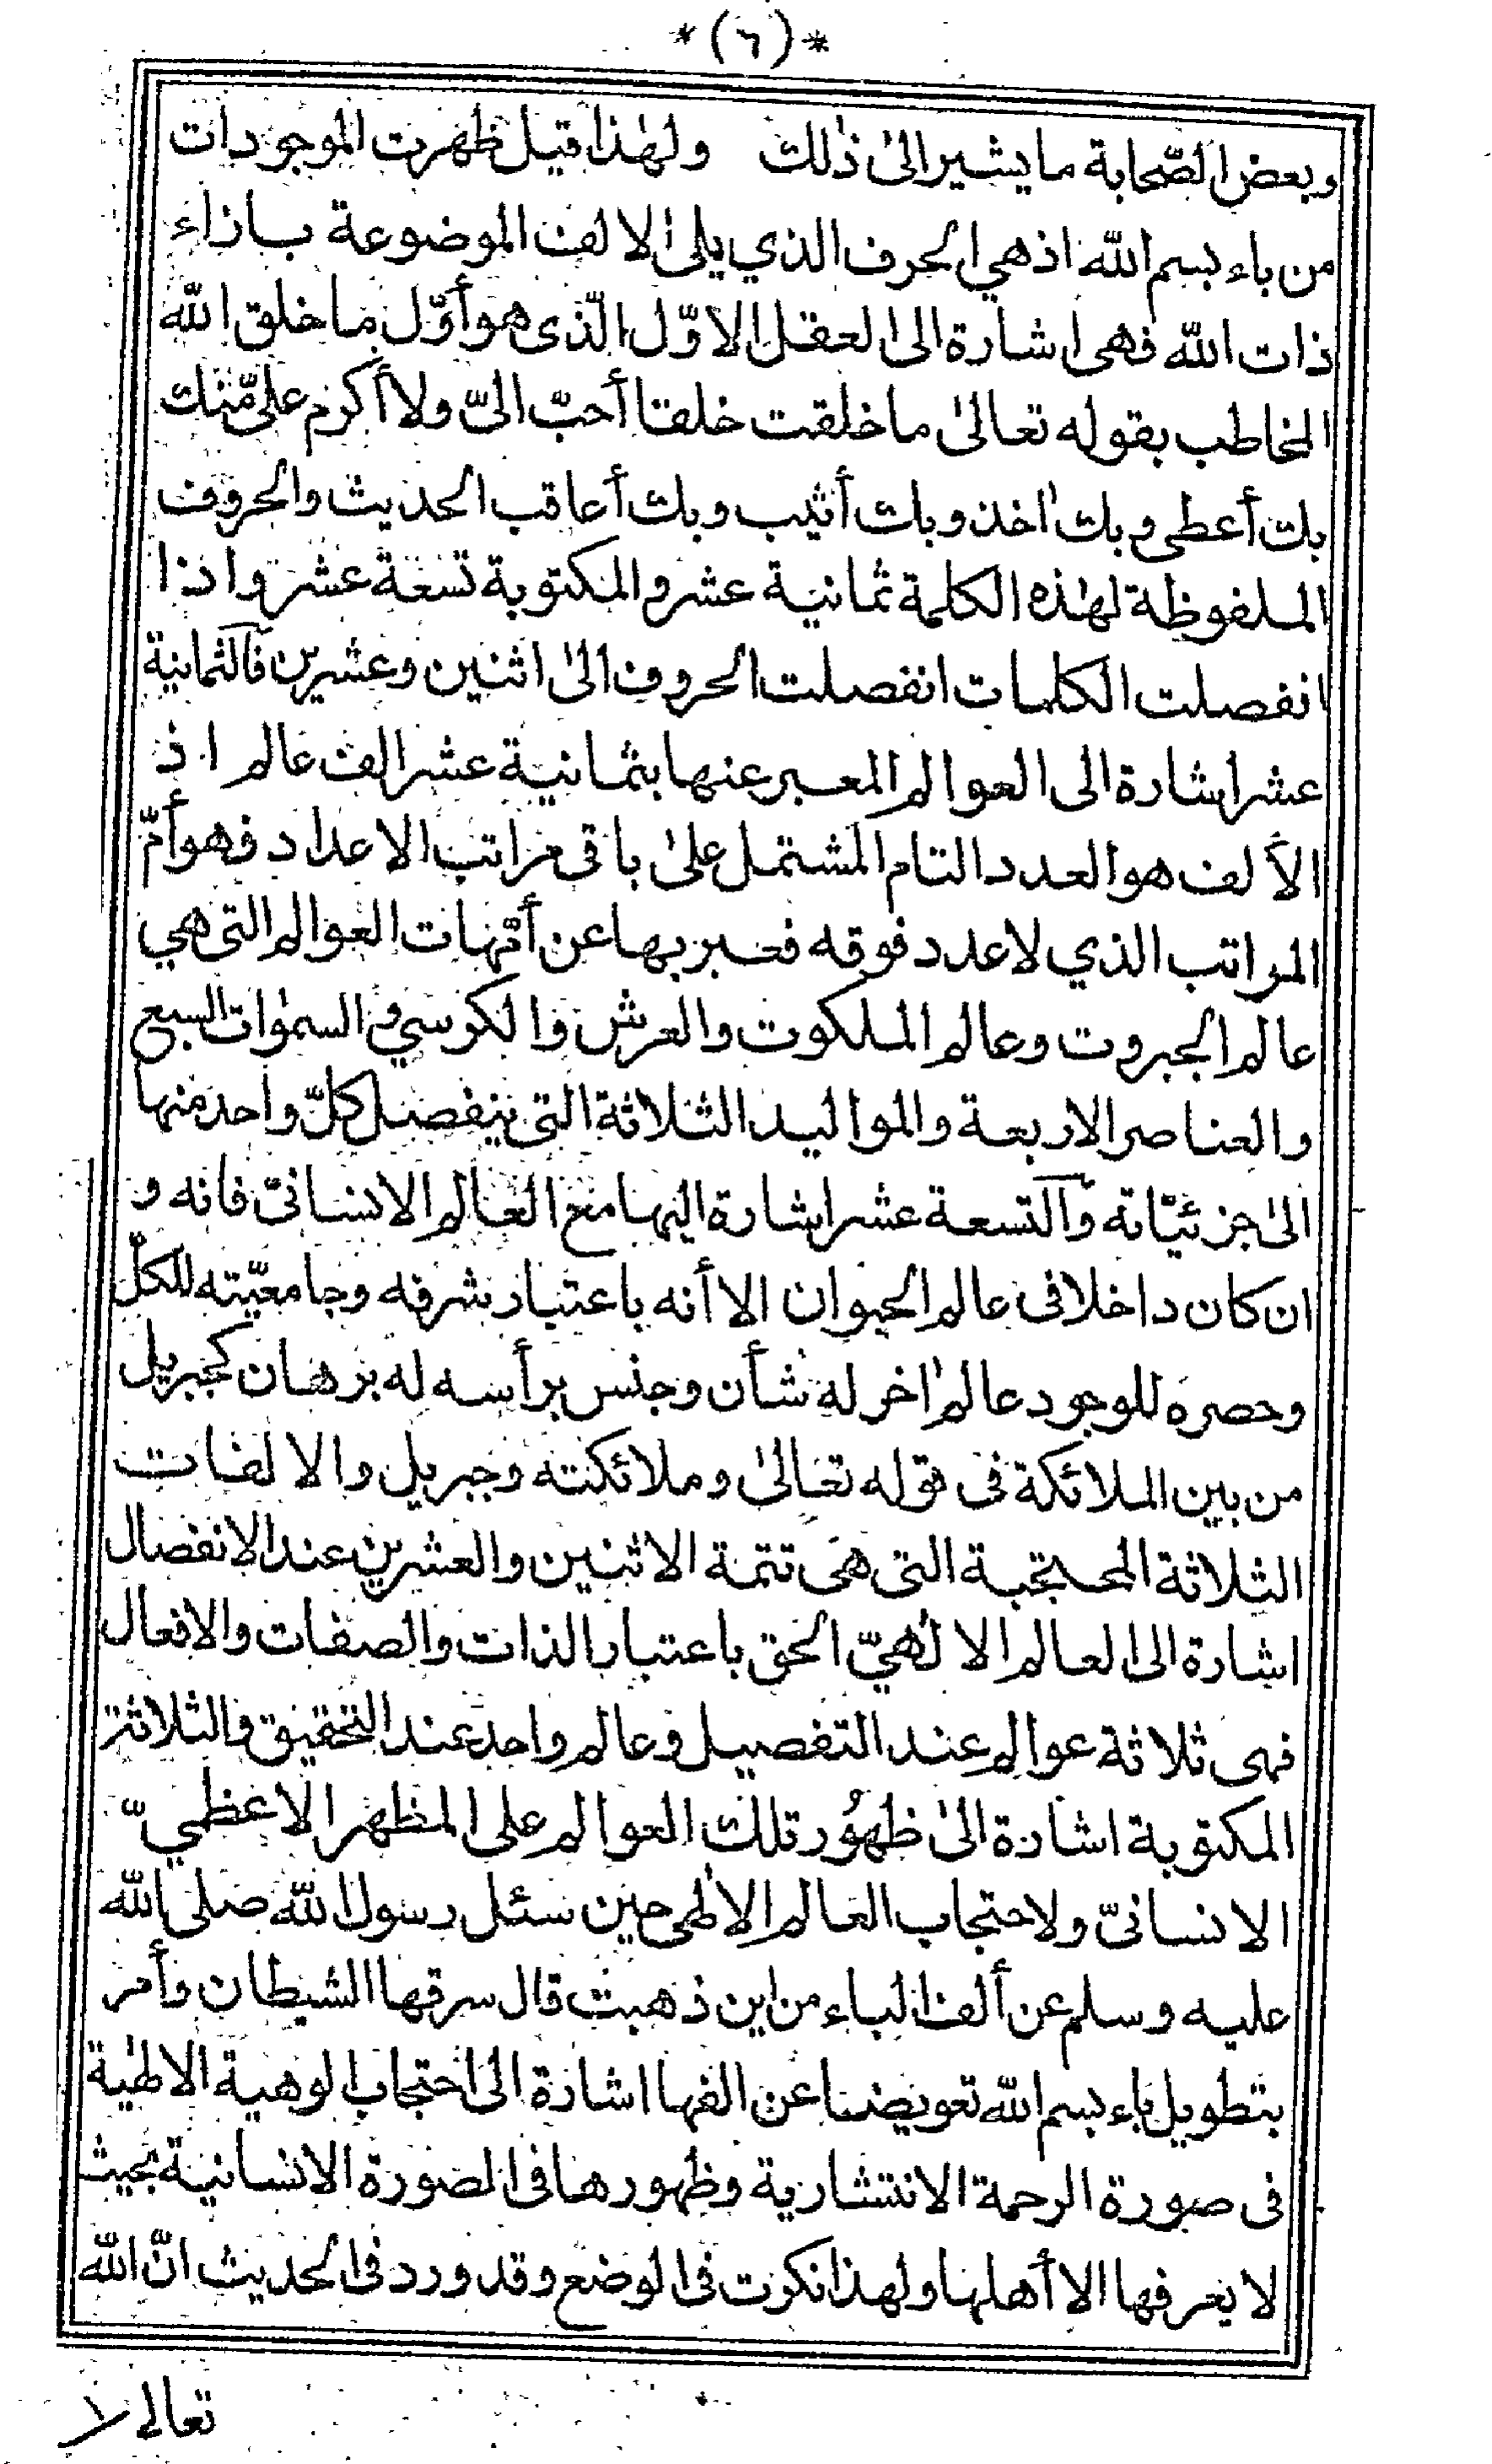 *(٦)*
وبعض الصّحابة ما يشير الىٰ ذٰلك ولهٰذا قيل ظهرت الموجودات
من باء بسم الله اذ هي الحرف الذي يلى الالف الموضوعة بازاء
ذات الله فهى اشارة الى العقل الاوّل الّذى هو أوّل ما خلق الله
المخاطب بقوله تعالىٰ ما خلقت خلقا أحبّ الىّ ولا أكرم علىّ منك
بك أعطى وبك اٰخذ وبك أثيب وبك أعاقب الحديث والحروف
الملفوظة لهٰذه الكلمة ثمانية عشر والمكتوبة تسعة عشر واذا
انفصلت الكلمات انفصلت الحروف الىٰ اثنين وعشرين فالثمانية
عشر اشارة الى العوالم المعبر عنها بثمانية عشر الف عالم اذ
الألف هو العدد التام المشتمل علىٰ باقى مراتب الاعداد فهو أمّ
المراتب الذي لا عدد فوقه فعبر بها عن أمّهات العوالم التى هي
عالم الجبروت وعالم الملكوت والعرش والكرسي والسمٰوات السبع
والعناصر الاربعة والمواليد الثلاثة التى ينفصل كلّ واحد منها
الىٰ جزئيّاته والتسعة عشر اشارة اليها مع العالم الانسانىّ فانه و
ان كان داخلا فى عالم الحيوان الا أنه باعتبار شرفه وجامعيّته للكلّ
وحصره للوجود عالم اٰخر له شأن وجنس برأسه له برهان كجبريل
من بين الملائكة فى قوله تعالىٰ وملائكته وجبريل والالفات
الثلاثة المحتجبة التى هى تتمة الاثنين والعشرين عند الانفصال
اشارة الى العالم الالٰهيّ الحق باعتبار الذات والصفات والافعال
فهى ثلاثة عوالم عند التفصيل وعالم واحد عند التحقيق والثلاثة
المكتوبة اشارة الىٰ ظهُور تلك العوالم على المظهر الاعظميّ
الانسانىّ ولاحتجاب العالم الالٰهى حين سئل رسول الله صلى الله
عليه وسلم عن ألف الباء من اين ذهبت قال سرقها الشيطان وأمر
بتطويل باء بسم الله تعويضا عن الفها اشارة الى احتجاب الوهية الالٰهية
فى صورة الرحمة الانتشارية وظهورها فى الصورة الانسانية بحيث
لا يعرفها الا أهلها ولهذا نكرت فى الوضع وقد ورد فى الحديث انّ الله
تعالى لا